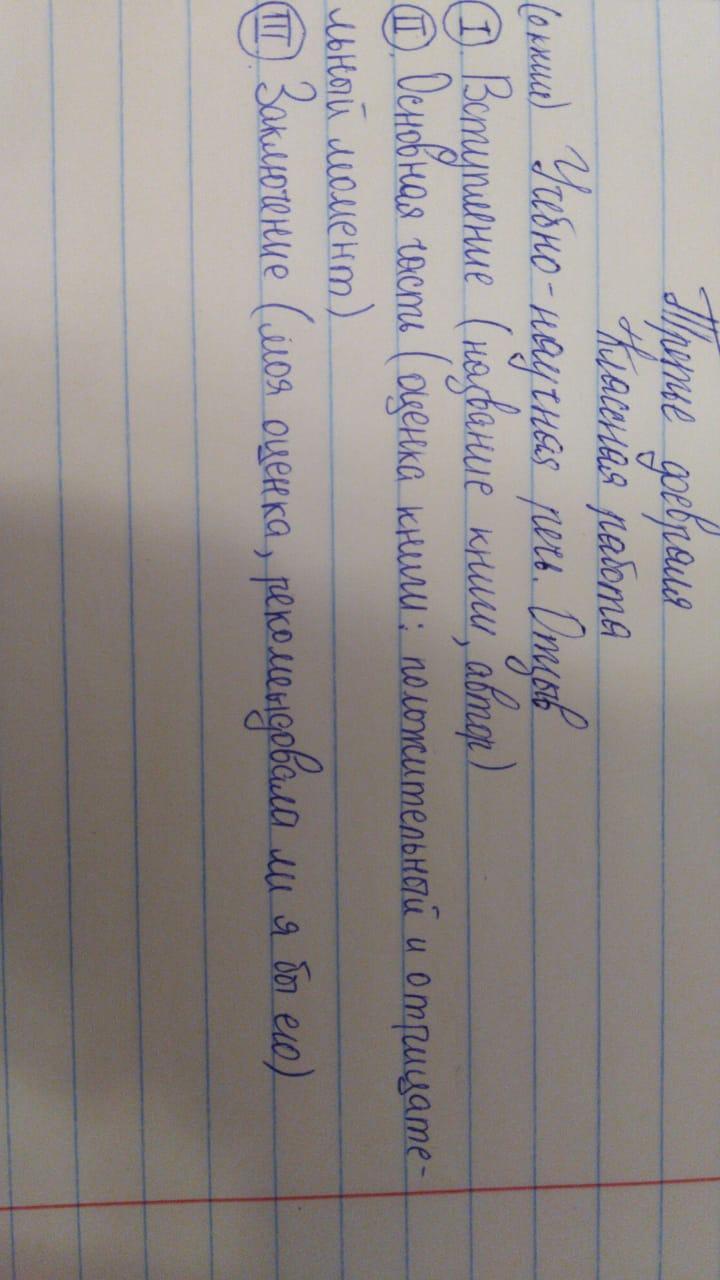 Третье февраля
Классная работа
(о книге) Учебно-научная речь. Отзыв
I Вступление (название книги, автор)
II. Основная часть (оценка книги: положительный и отрицате-
льный момент)
III. Заключение (моя оценка, рекомендовала ли я бы его)